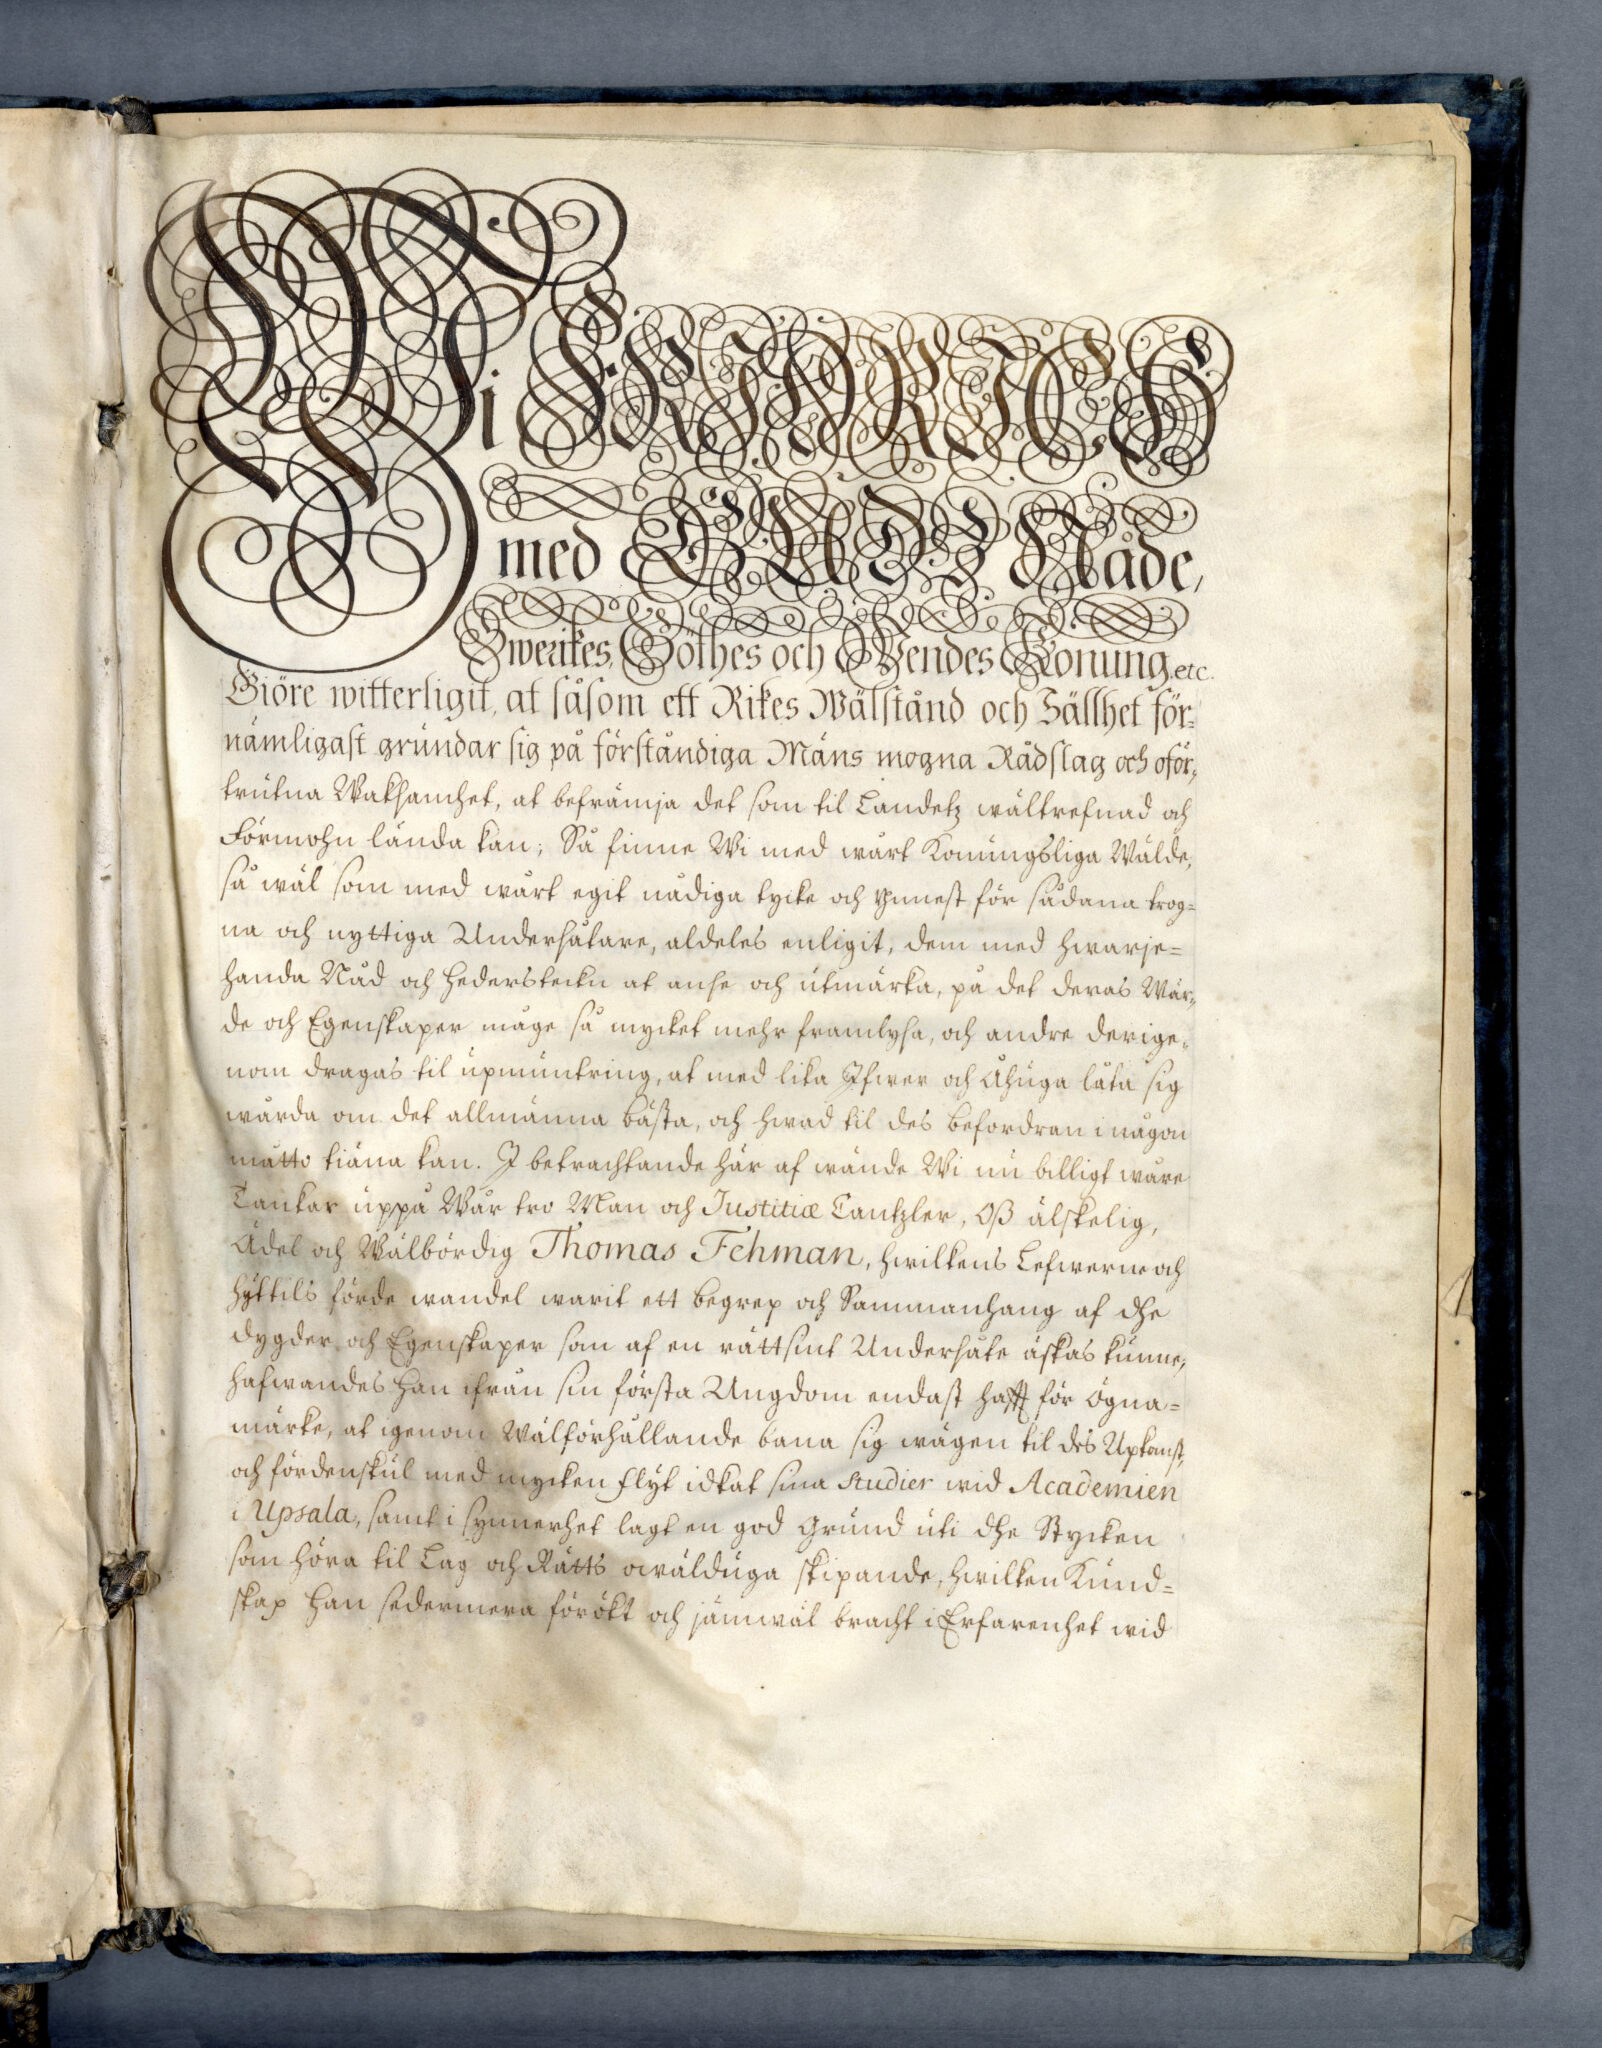 Wi FRIDRICH
med GUDZ Nåde,
Swerikes, Göthes och Wendes Konung etc.
Giöre witterligit, at såsom ett Rikes Wälstånd och Sällhet för-
nämligast grundar sig på förståndiga Mäns mogna Rådslag och oför-
trutna Waksamhet, at befrämja det som til Landetz wältrefnad och
Förmohn lända kan; Så finne Wi med wårt Konungsliga Wälde,
så wäl som med wårt egit nådiga tycke och Ynnest för sådana trog-
na och nyttiga Undersåtare, aldeles enligit, dem med hwarje-
handa Nåd och hedersteckn at anse och utmärka, på det deras Wär-
de och Egenskaper måge så mycket mehr framlysa, och andre derige-
nom dragas til upmuntring, at med lika Ifwer och Åhuga låta sig
wårda om det allmänna bästa, och hwad til des befordran i någon
måtto tiäna kan. I betrachtande här af wände Wi nu billigt wåre
Tankar uppå Wår tro Man och Justitiæ Cantzler, Oß älskelig,
Ädel och Wälbördig Thomas Fehman, hwilkens Lefwerne och
hyttils förde wandel warit ett begrep och Sammanhang af dhe
dygder och Egenskaper som af en rättsint Undersåte äskas kunne,
hafwandes han ifrån sin första Ungdom endast hafft för Ögna-
märke, at igenom Wälförhållande bana sig wägen til des Upkomst,
och fördenskul med mycken flyt idkat sina Studier wid Academien
i Upsala, samt i synnerhet lagt en god grund uti dhe Stycken
som höra til Lag och Rätts owälduga skipande, hwilken Kund-
skap han sedermera förökt och jämwäl bracht i Erfarenhet wid